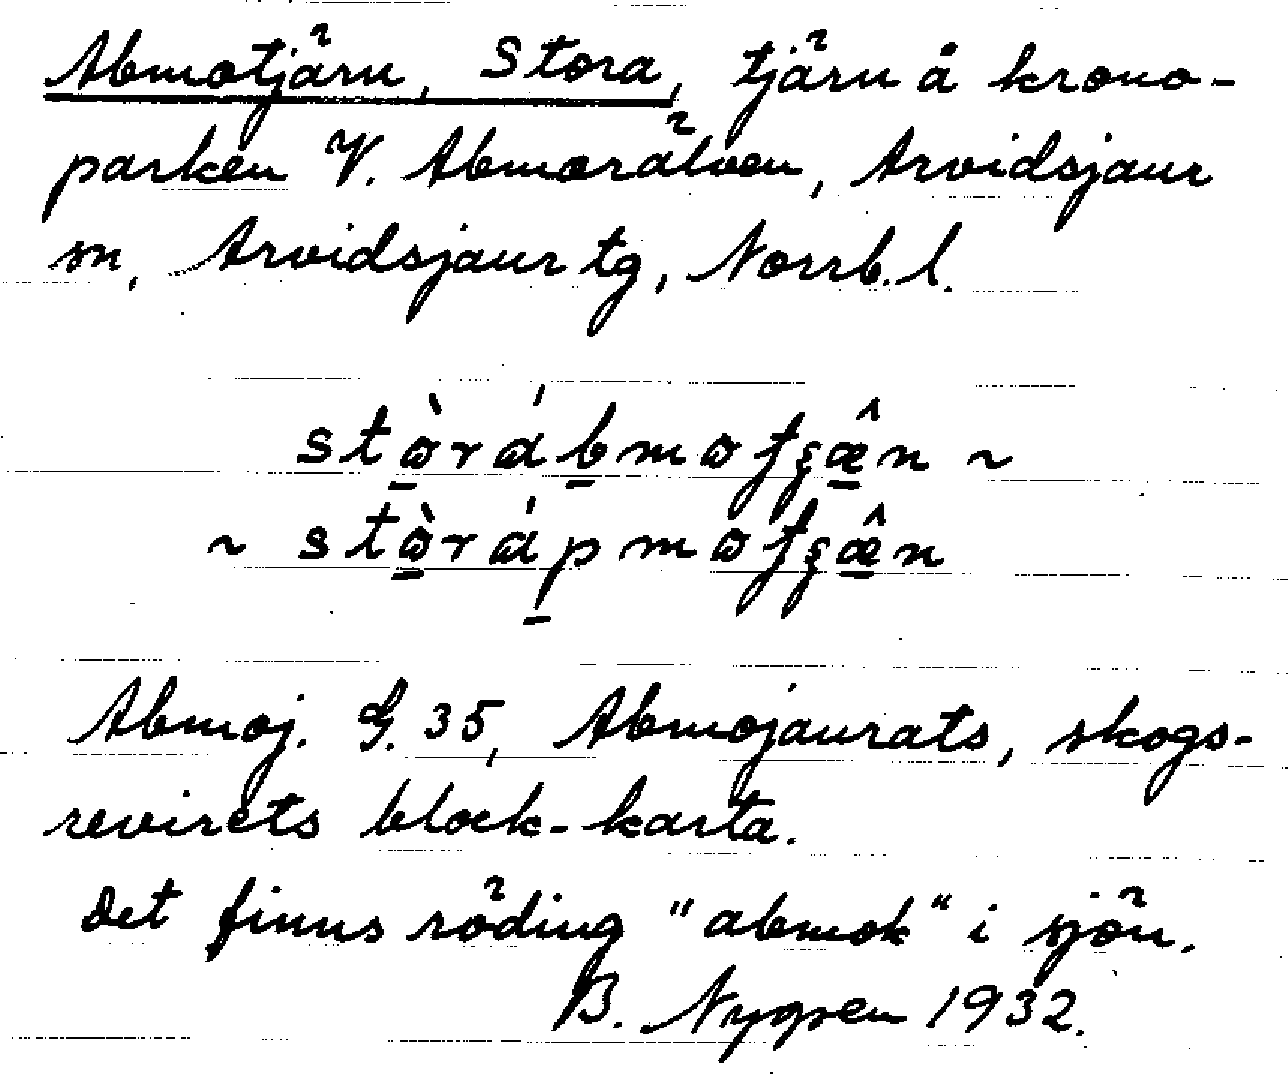 Abmotjärn, Stora, tjärn å krono-
parken V. Abmorälven, Arvidsjaur
sn, Arvidsjaur tg, Norrb. l.
Abmoj. G. 35, Abmojaurats, skogs-
revirets block-karta.
Det finns röding "abmok" i sjön.
B. Nygren 1932.